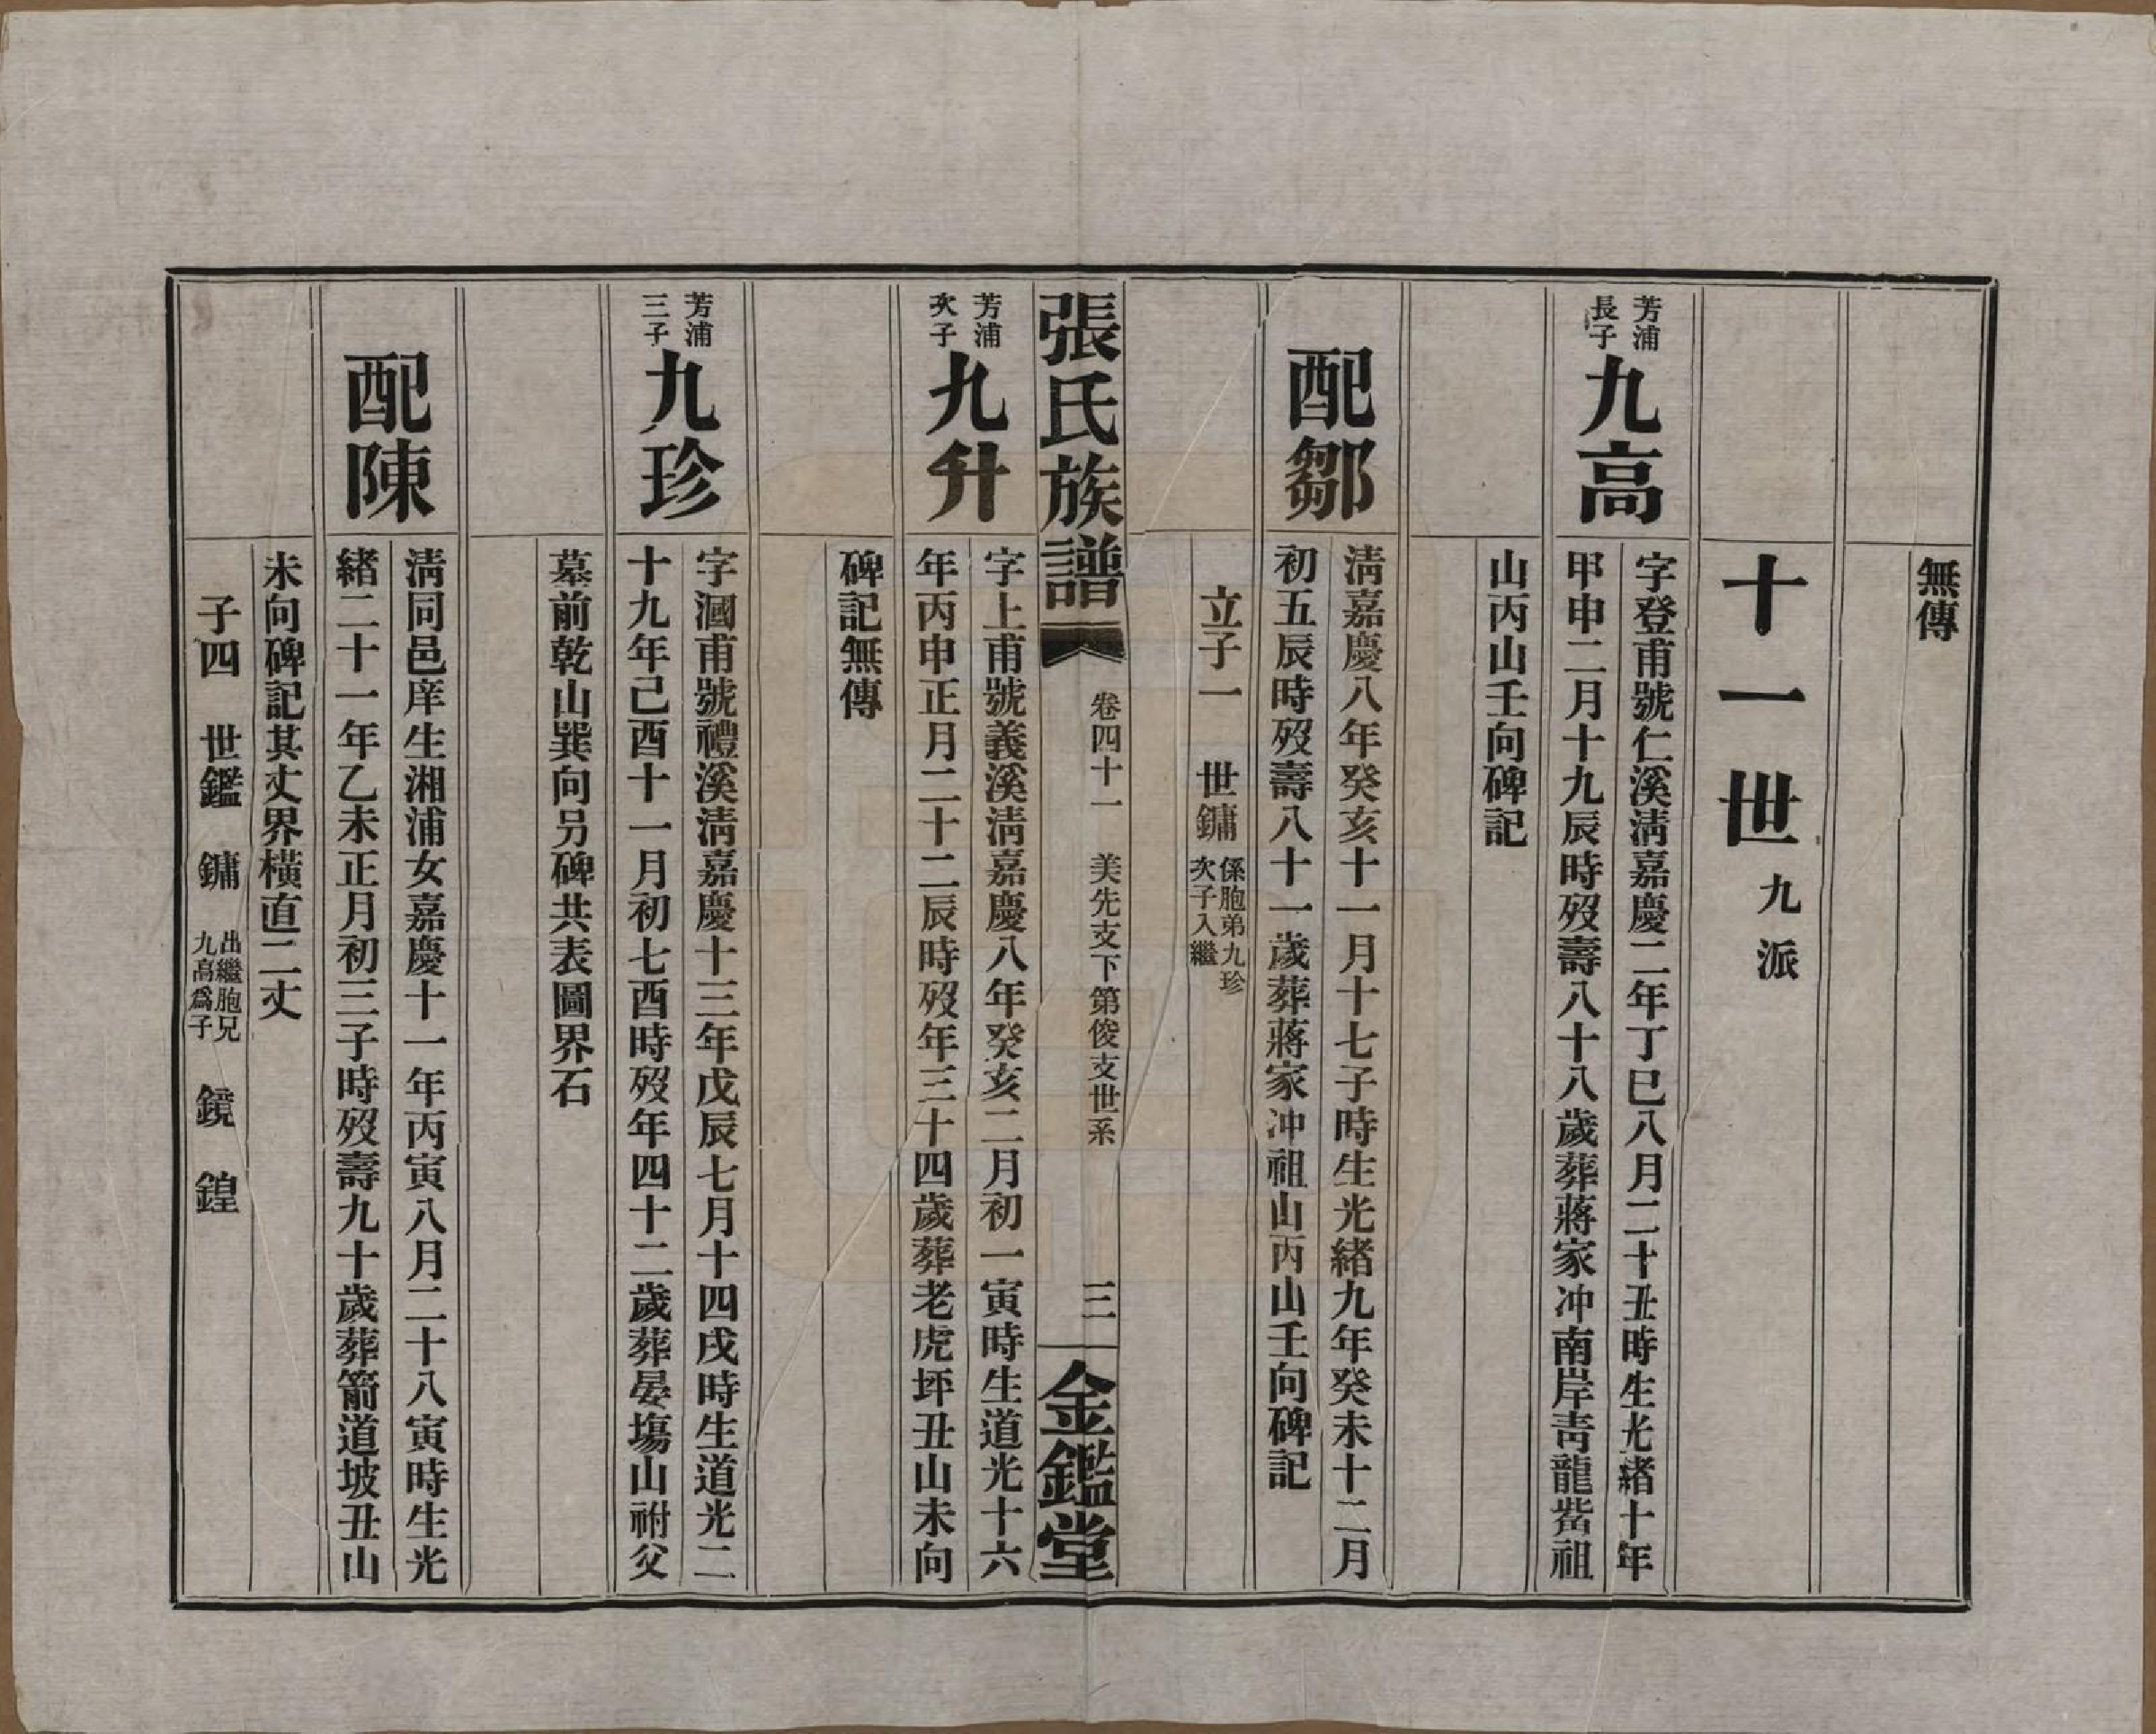 無傳
十一世 九派
芳浦
長子
九高
字登甫號仁溪淸嘉慶二年丁巳八月二十丑時生光緖十年
甲申二月十九辰時歿壽八十八歲葬蔣家冲南岸靑龍嘴祖
山丙山壬向碑記
配鄒
淸嘉慶八年癸亥十一月十七子時生光緖九年癸未十二月
初五辰時歿壽八十一歲葬蔣家冲祖山丙山壬向碑記
立子一 世鏞
係胞弟九珍
次子入繼
張氏族譜
卷四十一 美先支下第俊支世系
三
金鑑堂
芳浦
次子
九升
字上甫號義溪淸嘉慶八年癸亥二月初一寅時生道光十六
年丙申正月二十二辰時歿年三十四歲葬老虎坪丑山未向
碑記無傳
芳浦
三子
九珍
字漍甫號禮溪淸嘉慶十三年戊辰七月十四戌時生道光二
十九年己酉十一月初七酉時歿年四十二歲葬晏塲山祔父
墓前乾山巽向另碑共表圖界石
配陳
淸同邑庠生湘浦女嘉慶十一年丙寅八月二十八寅時生光
緖二十一年乙未正月初三子時歿壽九十歲葬箭道坡丑山
未向碑記其丈界橫直二丈
子四 世鑑 鏞
出繼胞兄
九高爲子
鏡 鍠